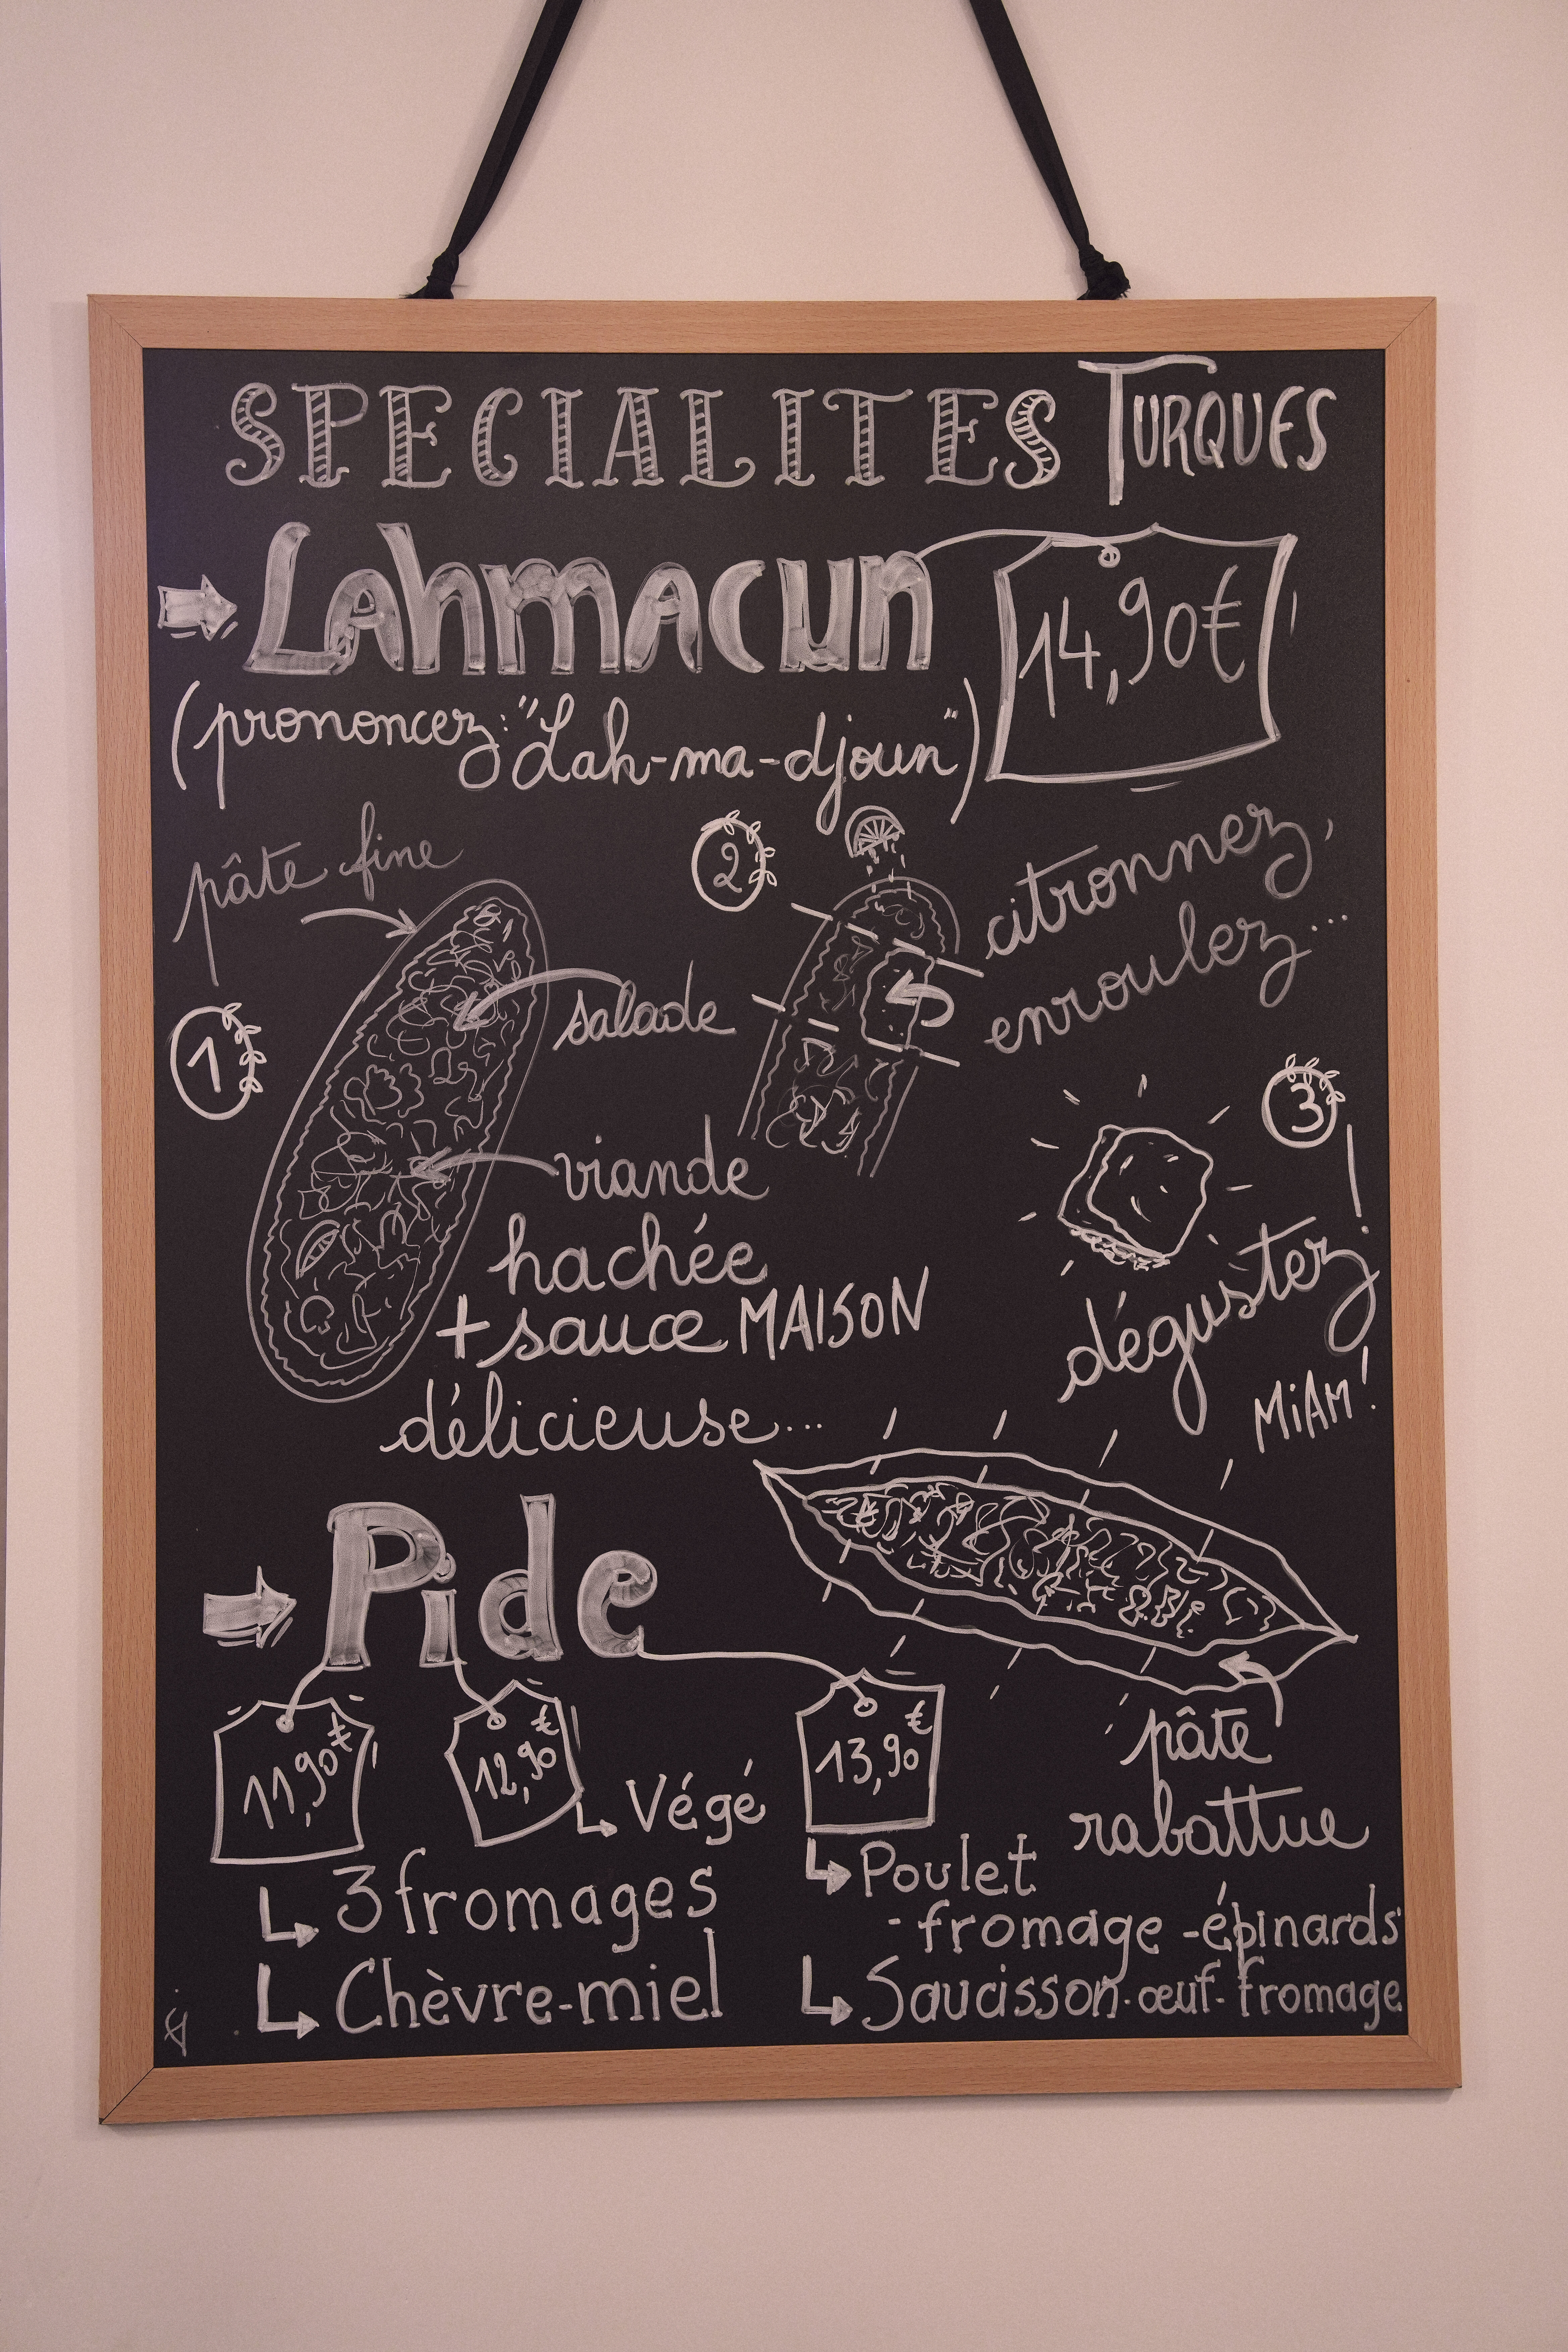 SPECIALITES TURQUES
Lahmacun
14,90€
(prononcez: "Lah-ma-djoun")
pâte fine
1
salade
viande
hachée
+ sauce MAISON
délicieuse...
2
citronnez,
enroulez...
3
dégustez!
MiAM!
Pide
11,90€
3 fromages
Chèvre-miel
12,90€
Végé
13,90€
Poulet
-fromage -épinards
Saucisson-œuf-fromage
pâte
rabattue